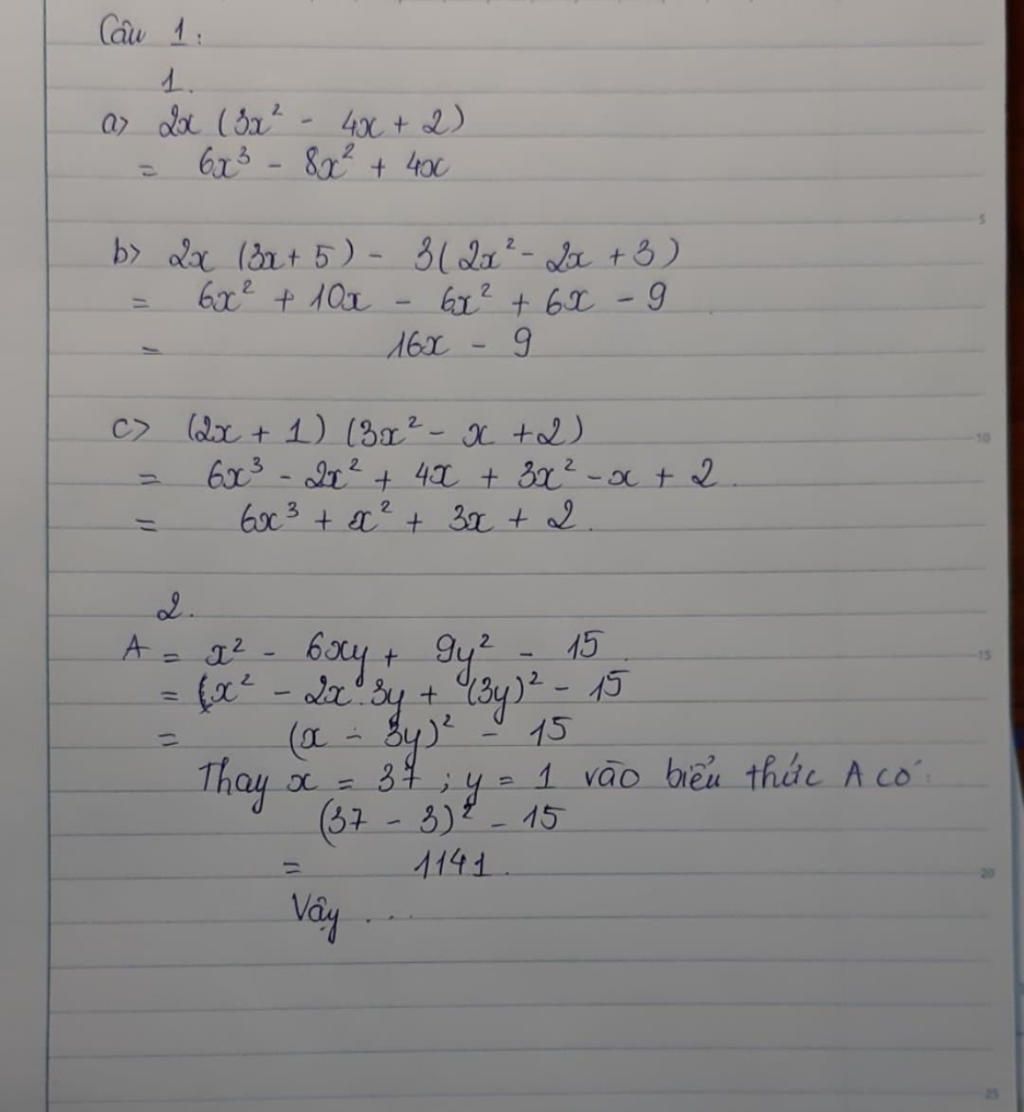 Câu 1:
1.
a> 2x (3x² - 4x + 2)
= 6x³ - 8x² + 4x
5
b> 2x (3x + 5) - 3(2x² - 2x + 3)
= 6x² + 10x - 6x² + 6x - 9
= 16x - 9
c> (2x + 1) (3x² - x + 2)
10
= 6x³ - 2x² + 4x + 3x² - x + 2.
= 6x³ + x² + 3x + 2.
2.
A = x² - 6xy + 9y² - 15
15
= (x² - 2x.3y + (3y)² - 15
= (x - 3y)² - 15
Thay x = 37 ; y = 1 vào biểu thức A có:
(37 - 3)² - 15
= 1141.
20
Vậy ...
25